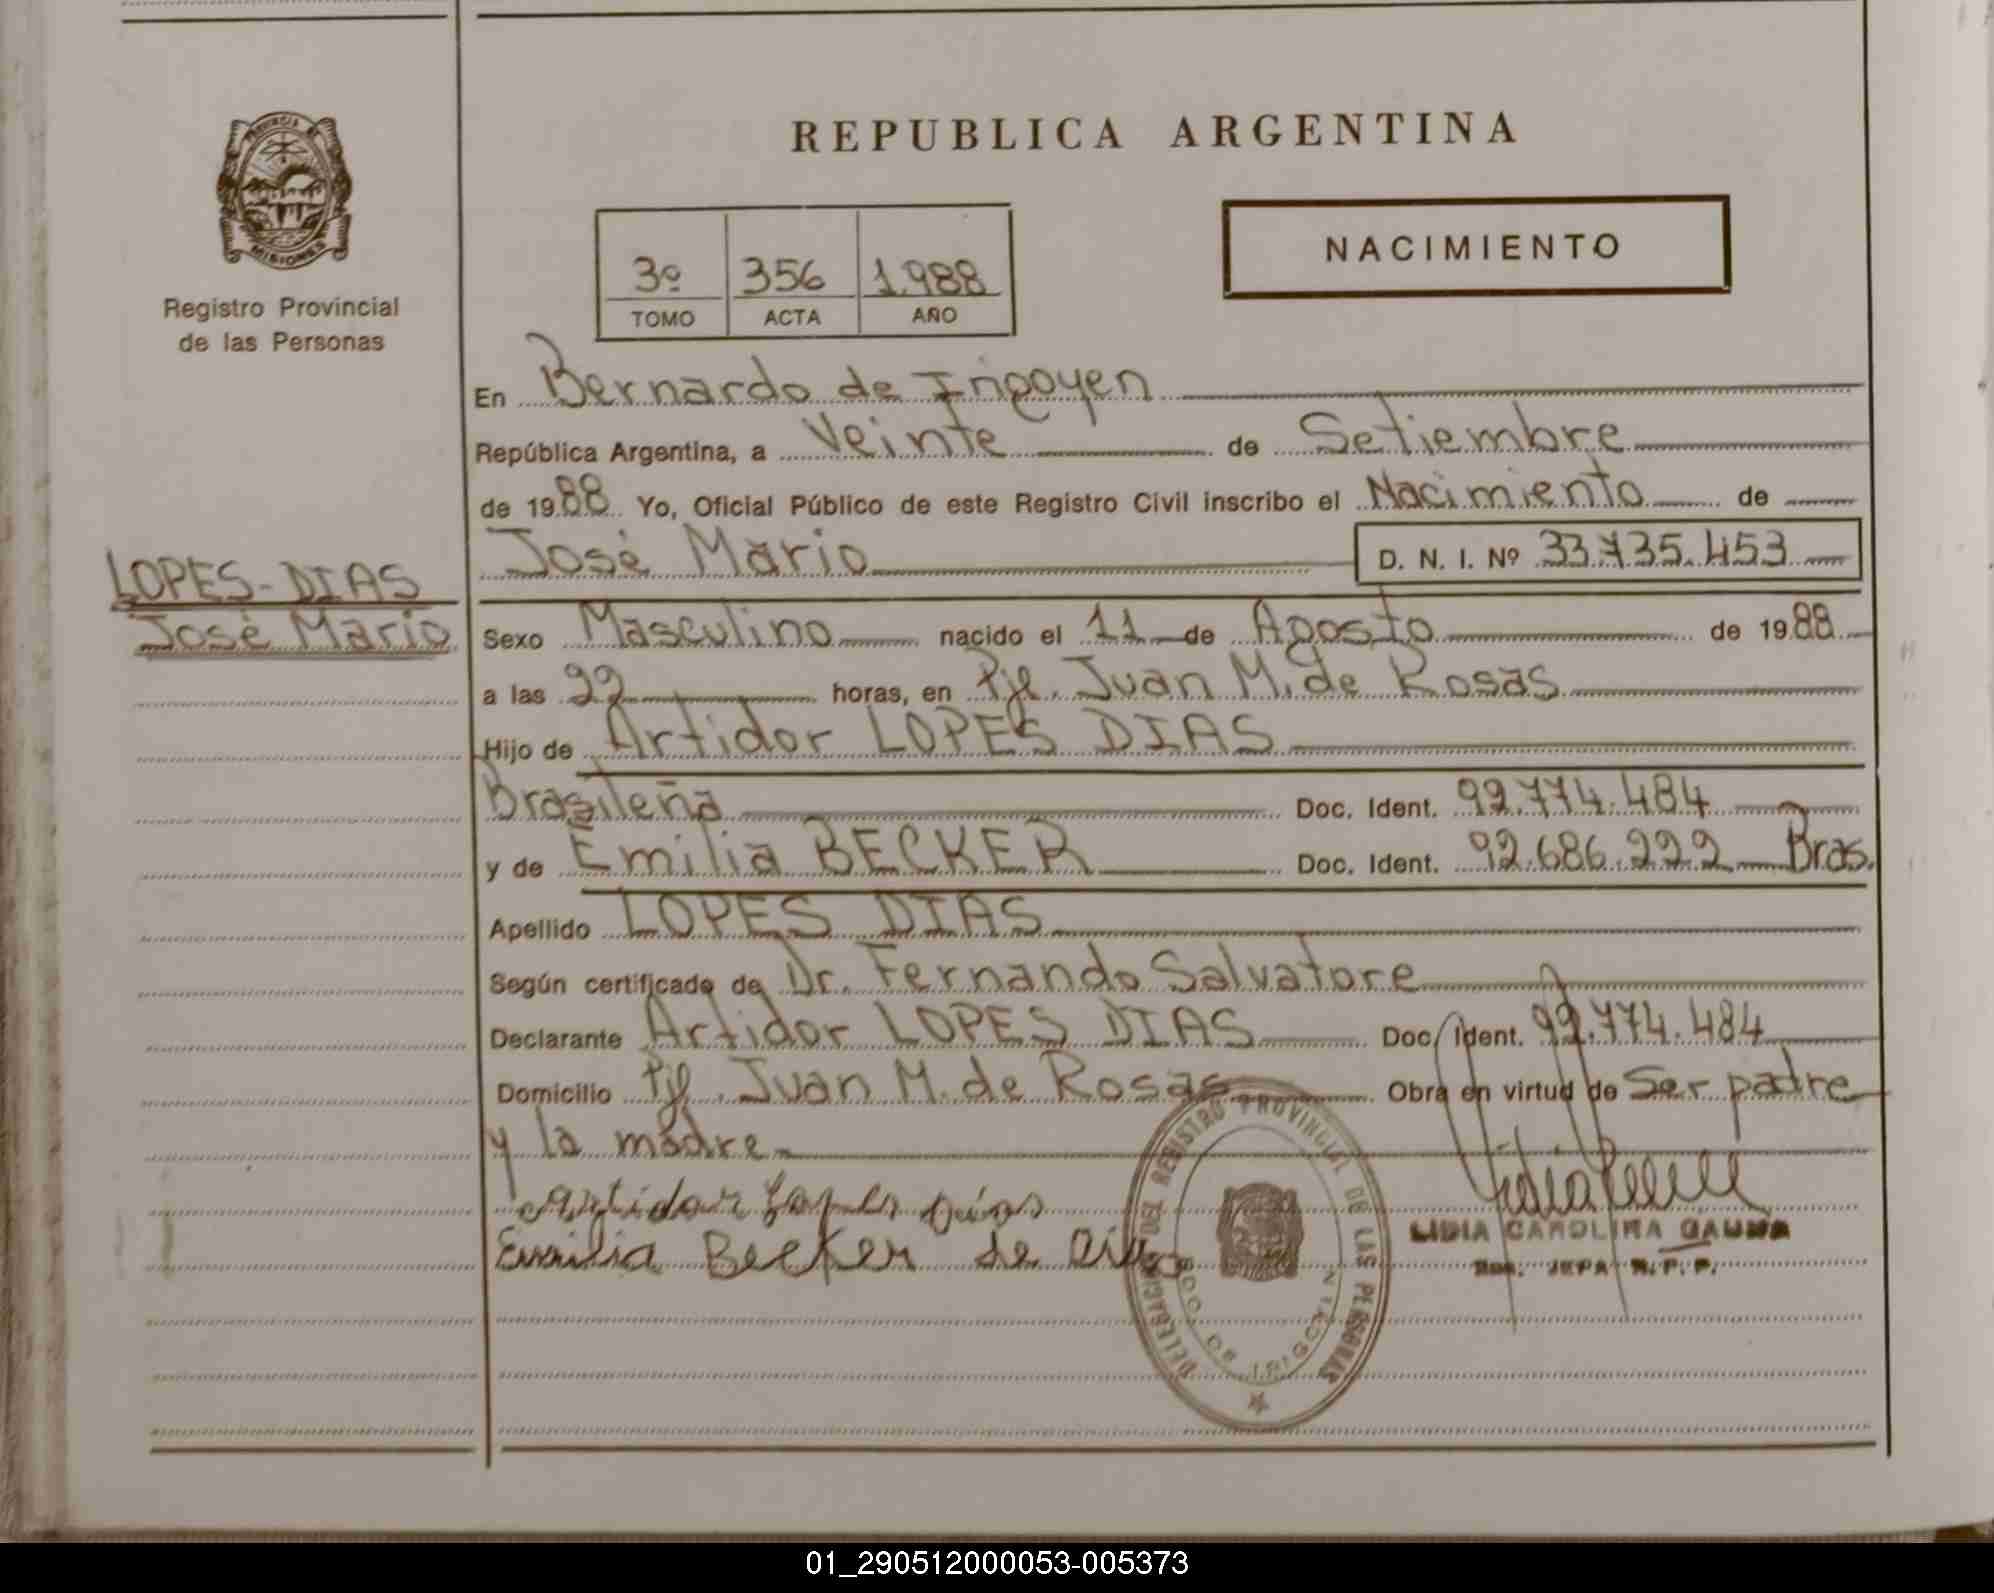 REPUBLICA ARGENTINA
PROVINCIA DE
MISIONES
Registro Provincial
de las Personas
NACIMIENTO
3º 356 1.988
TOMO ACTA AÑO
En Bernardo de Irigoyen
República Argentina, a Veinte de Setiembre
de 1988 Yo, Oficial Público de este Registro Civil inscribo el Nacimiento de
José Mario D. N. I. Nº 33.735.453
LOPES-DIAS
José Mario
Sexo Masculino nacido el 11 de Agosto de 1988
a las 22 horas, en Pje. Juan M. de Rosas
Hijo de Artidor LOPES DIAS
Brasileña Doc. Ident. 92.774.484
y de Emilia BECKER Doc. Ident. 92.686.222 Bras.
Apellido LOPES DIAS
Según certificado de Dr. Fernando Salvatore
Declarante Artidor LOPES DIAS Doc. Ident. 92.774.484
Domicilio Pje. Juan M. de Rosas Obra en virtud de Ser padre
y la madre
Artidor Lopes Dias
Emilia Becker de Dias
DELEGACION DEL REGISTRO PROVINCIAL DE LAS PERSONAS
BDO. DE IRIGOYEN
LIDIA CAROLINA GAUNA
JEFA R. P. P.
01_290512000053-005373